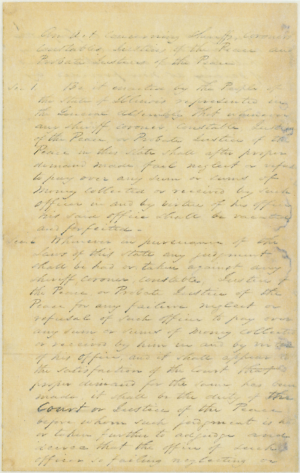 An Act concerning Sheriffs, Coroners
Constables, Justices of the Peace and
Probate Justices of the Peace
Sec 1. Be it enacted by the People of
the State of Illinois represented in
the General Assembly, That if
any sheriff Coroner Constable Justice
of the Peace or Probate Justice of the
Peace in this State shall after proper
demand made fail neglect or refuse
to pay over any sum or sums of
Money collected or received by such
officer in and by virtue of his office
his said office shall be
and forfeited.
Sec 2. Whenever in pursuance of the
laws of this state any judgment
shall be had or taken against any
sheriff Coroner Constable, Justice of
the Peace or Probate Justice of the
Peace for any failure neglect or
refusal of such officer to pay over
any sum or sums of Money collected
or received by him in and by virtue
of his office, and it shall appear to
the satisfaction of the Court that
proper demand for the same has been
made it shall be the duty of the
Court or Justice of the Peace
before whom such judgment is had
or taken further to
that the office of such
officer so failing neglecting or